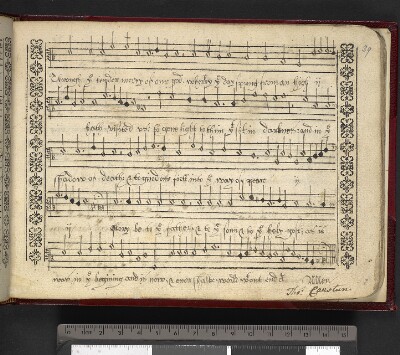 39
Through yͤ tender mercy of our god wherby yͤ day spring from on high ij
hath visited us to give light to them yͭ sit in darknes and in yͤ
shadow of death & to guide our feet into yͤ way of peace ij
ij Glory be to yͤ father & to yͤ sonn & to yͤ holy gost as it
was in yͤ begining and is now & ever shalbe world without end &
Thoˢ